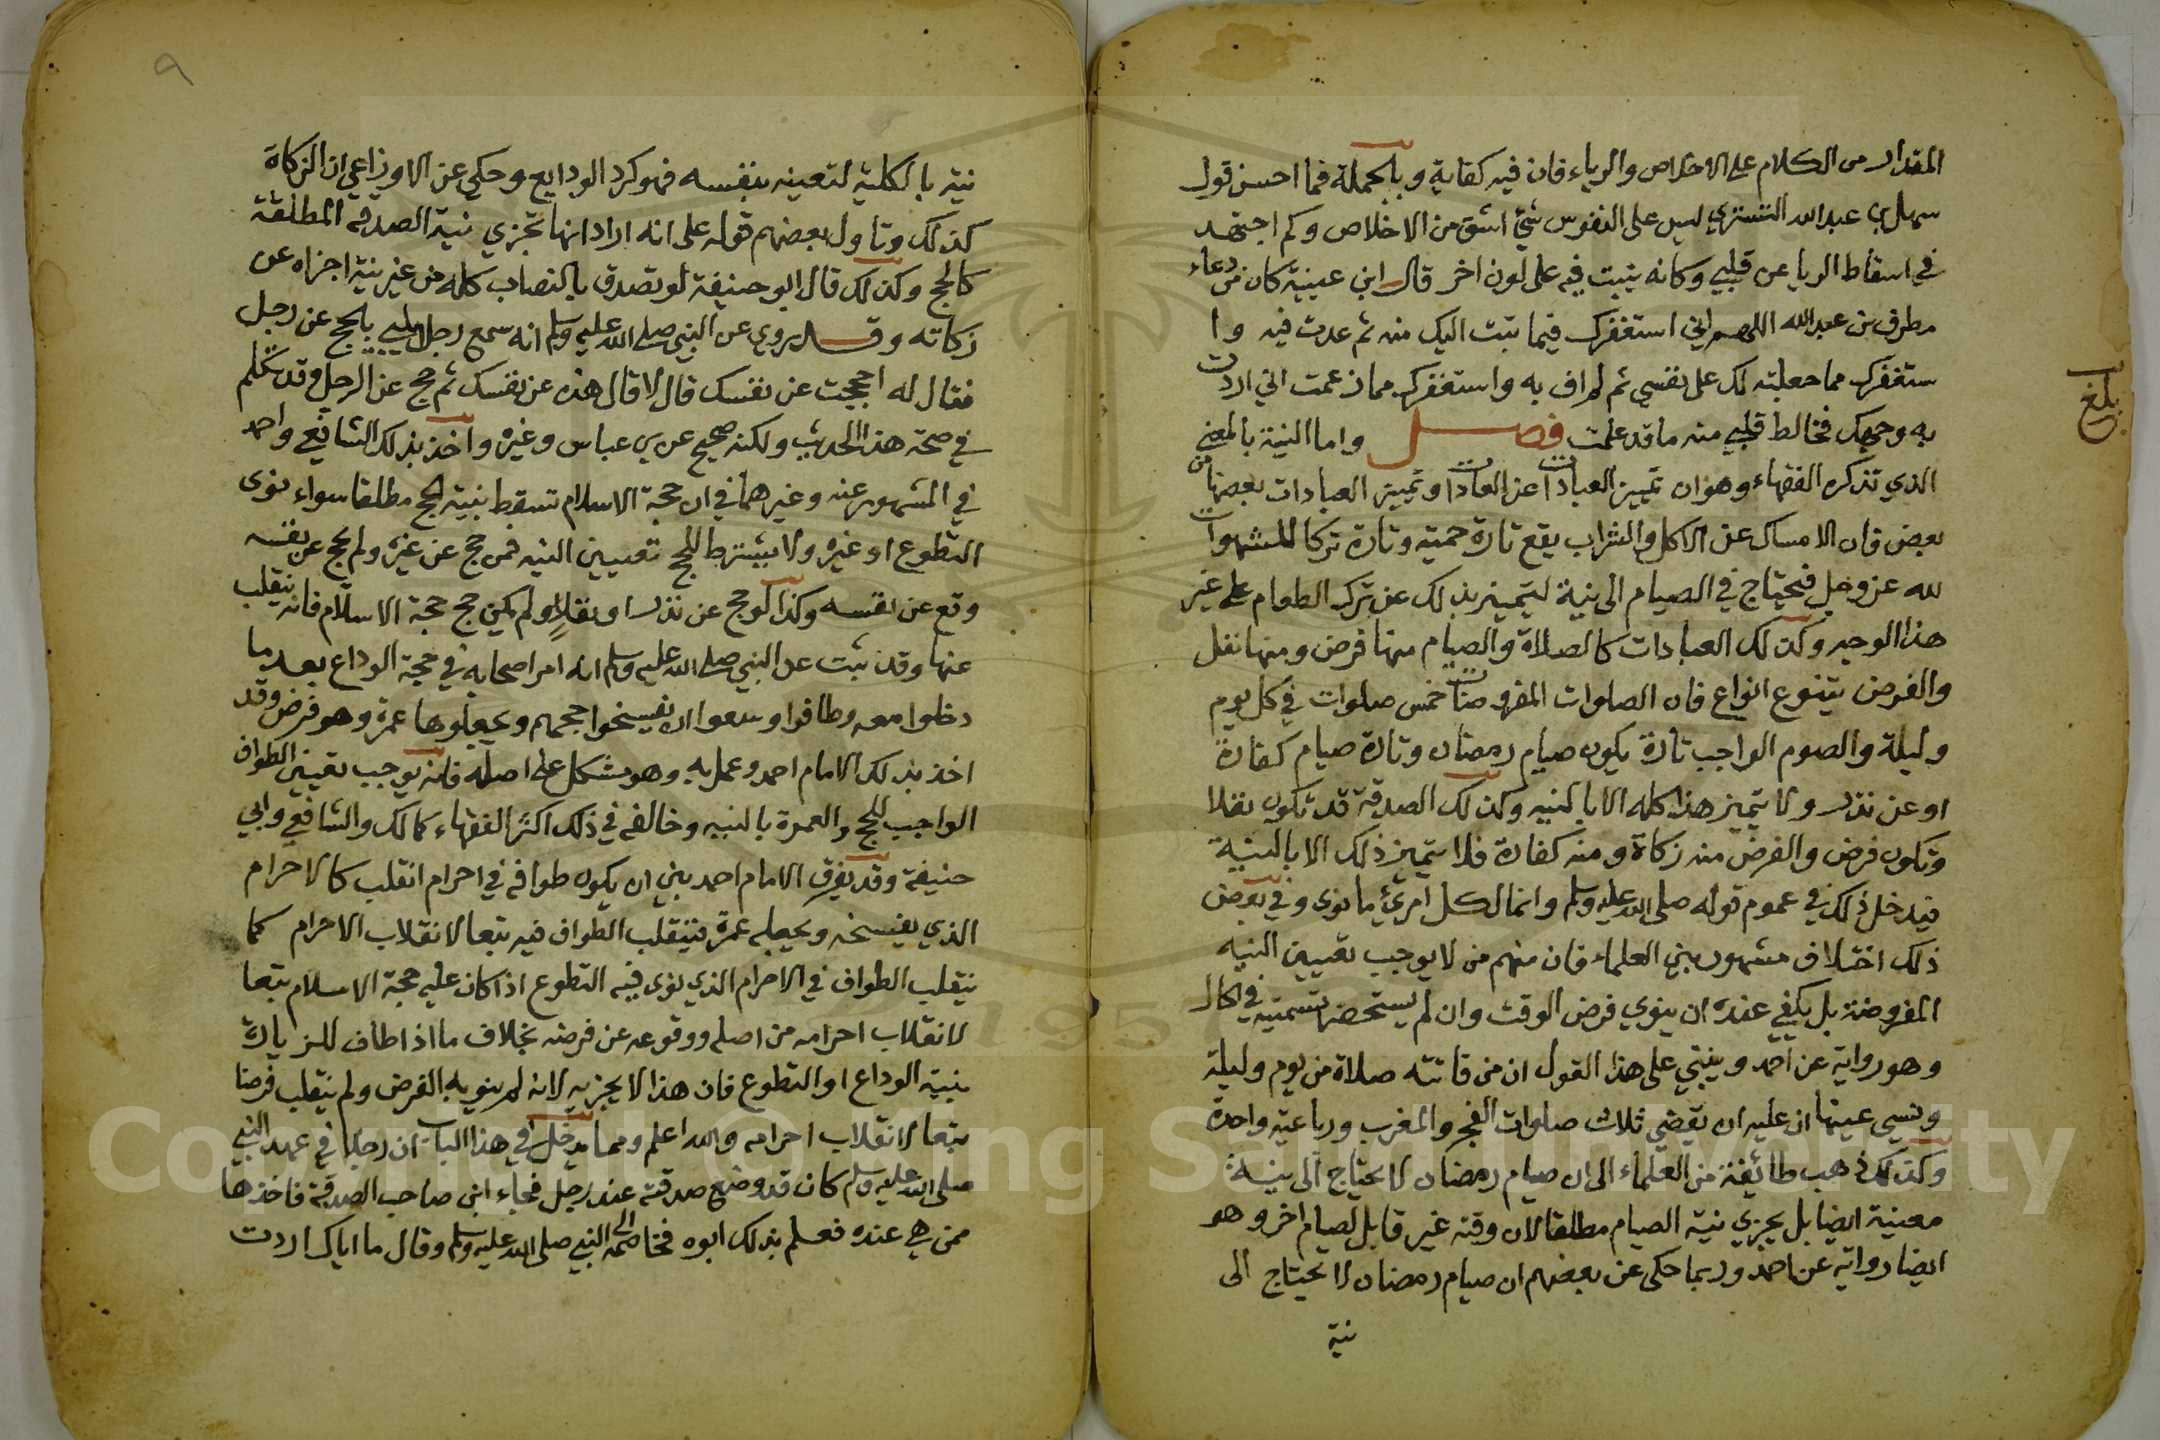 المقدار من الكلام على الاخلاص والرياء فان فيه كفاية وبالجملة فما احسن قول
سهل بن عبد الله التستري ليس على النفوس شئ اشق من الاخلاص وكم اجتهد
في اسقاط الريا عن قلبي وكانه ينبت فيه على لون اخر قال ابن عيينة كان من دعاء
مطرف بن عبد الله اللهم اني استغفرك فيما تبت اليك منه ثم عدت فيه وا
ستغفرك مما جعلته لك على نفسي ثم لم اف به واستغفرك مما زعمت اني اردت
به وجهك فخالط قلبي منه ما قد علمت فصل واما النية بالمعنى
الذي تذكره الفقهاء وهو ان تمييز العبادات عن العادات وتمييز العبادات بعضها من
بعض فان الامساك عن الاكل والشراب يقع تارة حمية وتارة تركا للشهوات
لله عز وجل فيحتاج في الصيام الى نية ليتميز بذلك عن ترك الطعام على غير
هذا الوجه وكذلك العبادات كالصلاة والصيام منها فرض ومنها نفل
والفرض يتنوع انواع فان الصلوات المفروضات خمس صلوات في كل يوم
وليلة والصوم الواجب تارة يكون صيام رمضان وتارة صيام كفارة
او عن نذر ولا يتميز هذا كله الا بالنيه وكذلك الصدقة قد تكون نفلا
وتكون فرض والفرض منه زكاة ومنه كفارة فلا يتميز ذلك الا بالنية
فيدخل ذلك في عموم قوله صلى الله عليه وسلم وانما لكل امرئ ما نوى وفي بعض
ذلك اختلاف مشهور بين العلماء فان منهم من لا يوجب تعيين النيه
المفروضة بل يكفي عنده ان ينوي فرض الوقت وان لم يستحضر تسميته في الحال
وهو رواية عن احمد وينبني على هذا القول ان من فاتته صلاة من يوم وليلة
ونسي عينها ان عليه ان يقضي ثلاث صلوات الفجر والمغرب ورباعية واحدة
وكذلك ذهب طائفة من العلماء الى ان صيام رمضان لا يحتاج الى نية
معينة ايضا بل يجزي نية الصيام مطلقا لان وقته غير قابل لصيام اخر وهو
ايضا رواية عن احمد وربما حكى عن بعضهم ان صيام رمضان لا يحتاج الى
نية
بلغ
٩
نية بالكلية لتعينه بنفسه فهو كرد الودايع وحكي عن الاوزاعي ان الزكاة
كذلك وتاول بعضهم قوله على انه اراد انها تجزي نية الصدقة المطلقة
كالحج وكذلك قال ابو حنيفة لو تصدق بالنصاب كله من غير نية اجزاه عن
زكاته وقد روي عن النبي صلى الله عليه وسلم انه سمع رجل يلبي بالحج عن رجل
فقال له احججت عن نفسك قال لا قال هذه عن نفسك ثم حج عن الرجل وقد تكلم
في صحة هذا الحديث ولكنه صحيح عن بن عباس وغيره واخذ بذلك الشافعي واحمد
في المشهور عنه وغيرهما في ان حجة الاسلام تسقط بنية الحج مطلقا سواء نوى
التطوع او غيره ولا يشترط للحج تعيين النيه فمن حج عن غيره ولم يحج عن نفسه
وقع عن نفسه وكذا لو حج عن نذر او نفلا ولم يكن حج حجة الاسلام فانه ينقلب
عنها وقد ثبت عن النبي صلى الله عليه وسلم انه امر اصحابه في حجة الوداع بعد ما
دخلوا معه وطافوا وسعوا ان يفسخوا حجهم ويجعلوها عمرة وهو فرض وقد
اخذ بذلك الامام احمد وعمل به وهو مشكل على اصله فانه يوجب تعيين الطواف
الواجب للحج والعمرة بالنيه وخالفه في ذلك اكثر الفقهاء كمالك والشافعي وابي
حنيفة وقد يفرق الامام احمد بين ان يكون طوافه في احرام انقلب كالاحرام
الذي يفسخه ويجعله عمرة فينقلب الطواف فيه تبعا لانقلاب الاحرام كما
ينقلب الطواف في الاحرام الذي نوى فيه التطوع اذا كان عليه حجة الاسلام تبعا
لانقلاب احرامه من اصله ووقوعه عن فرضه بخلاف ما اذا طاف للزيارة
بنية الوداع او التطوع فان هذا لا يجزيه لانه لم ينو به الفرض ولم ينقلب فرضا
تبعا لانقلاب احرامه والله اعلم ومما يدخل في هذا الباب ان رجلا في عهد النبي
صلى الله عليه وسلم كان قد وضع صدقته عند رجل فجاء ابن صاحب الصدقة فاخذها
ممن هي عنده فعلم بذلك ابوه فخاصمه الى النبي صلى الله عليه وسلم وقال ما اياك اردت
Copyright © King Saud University
1957